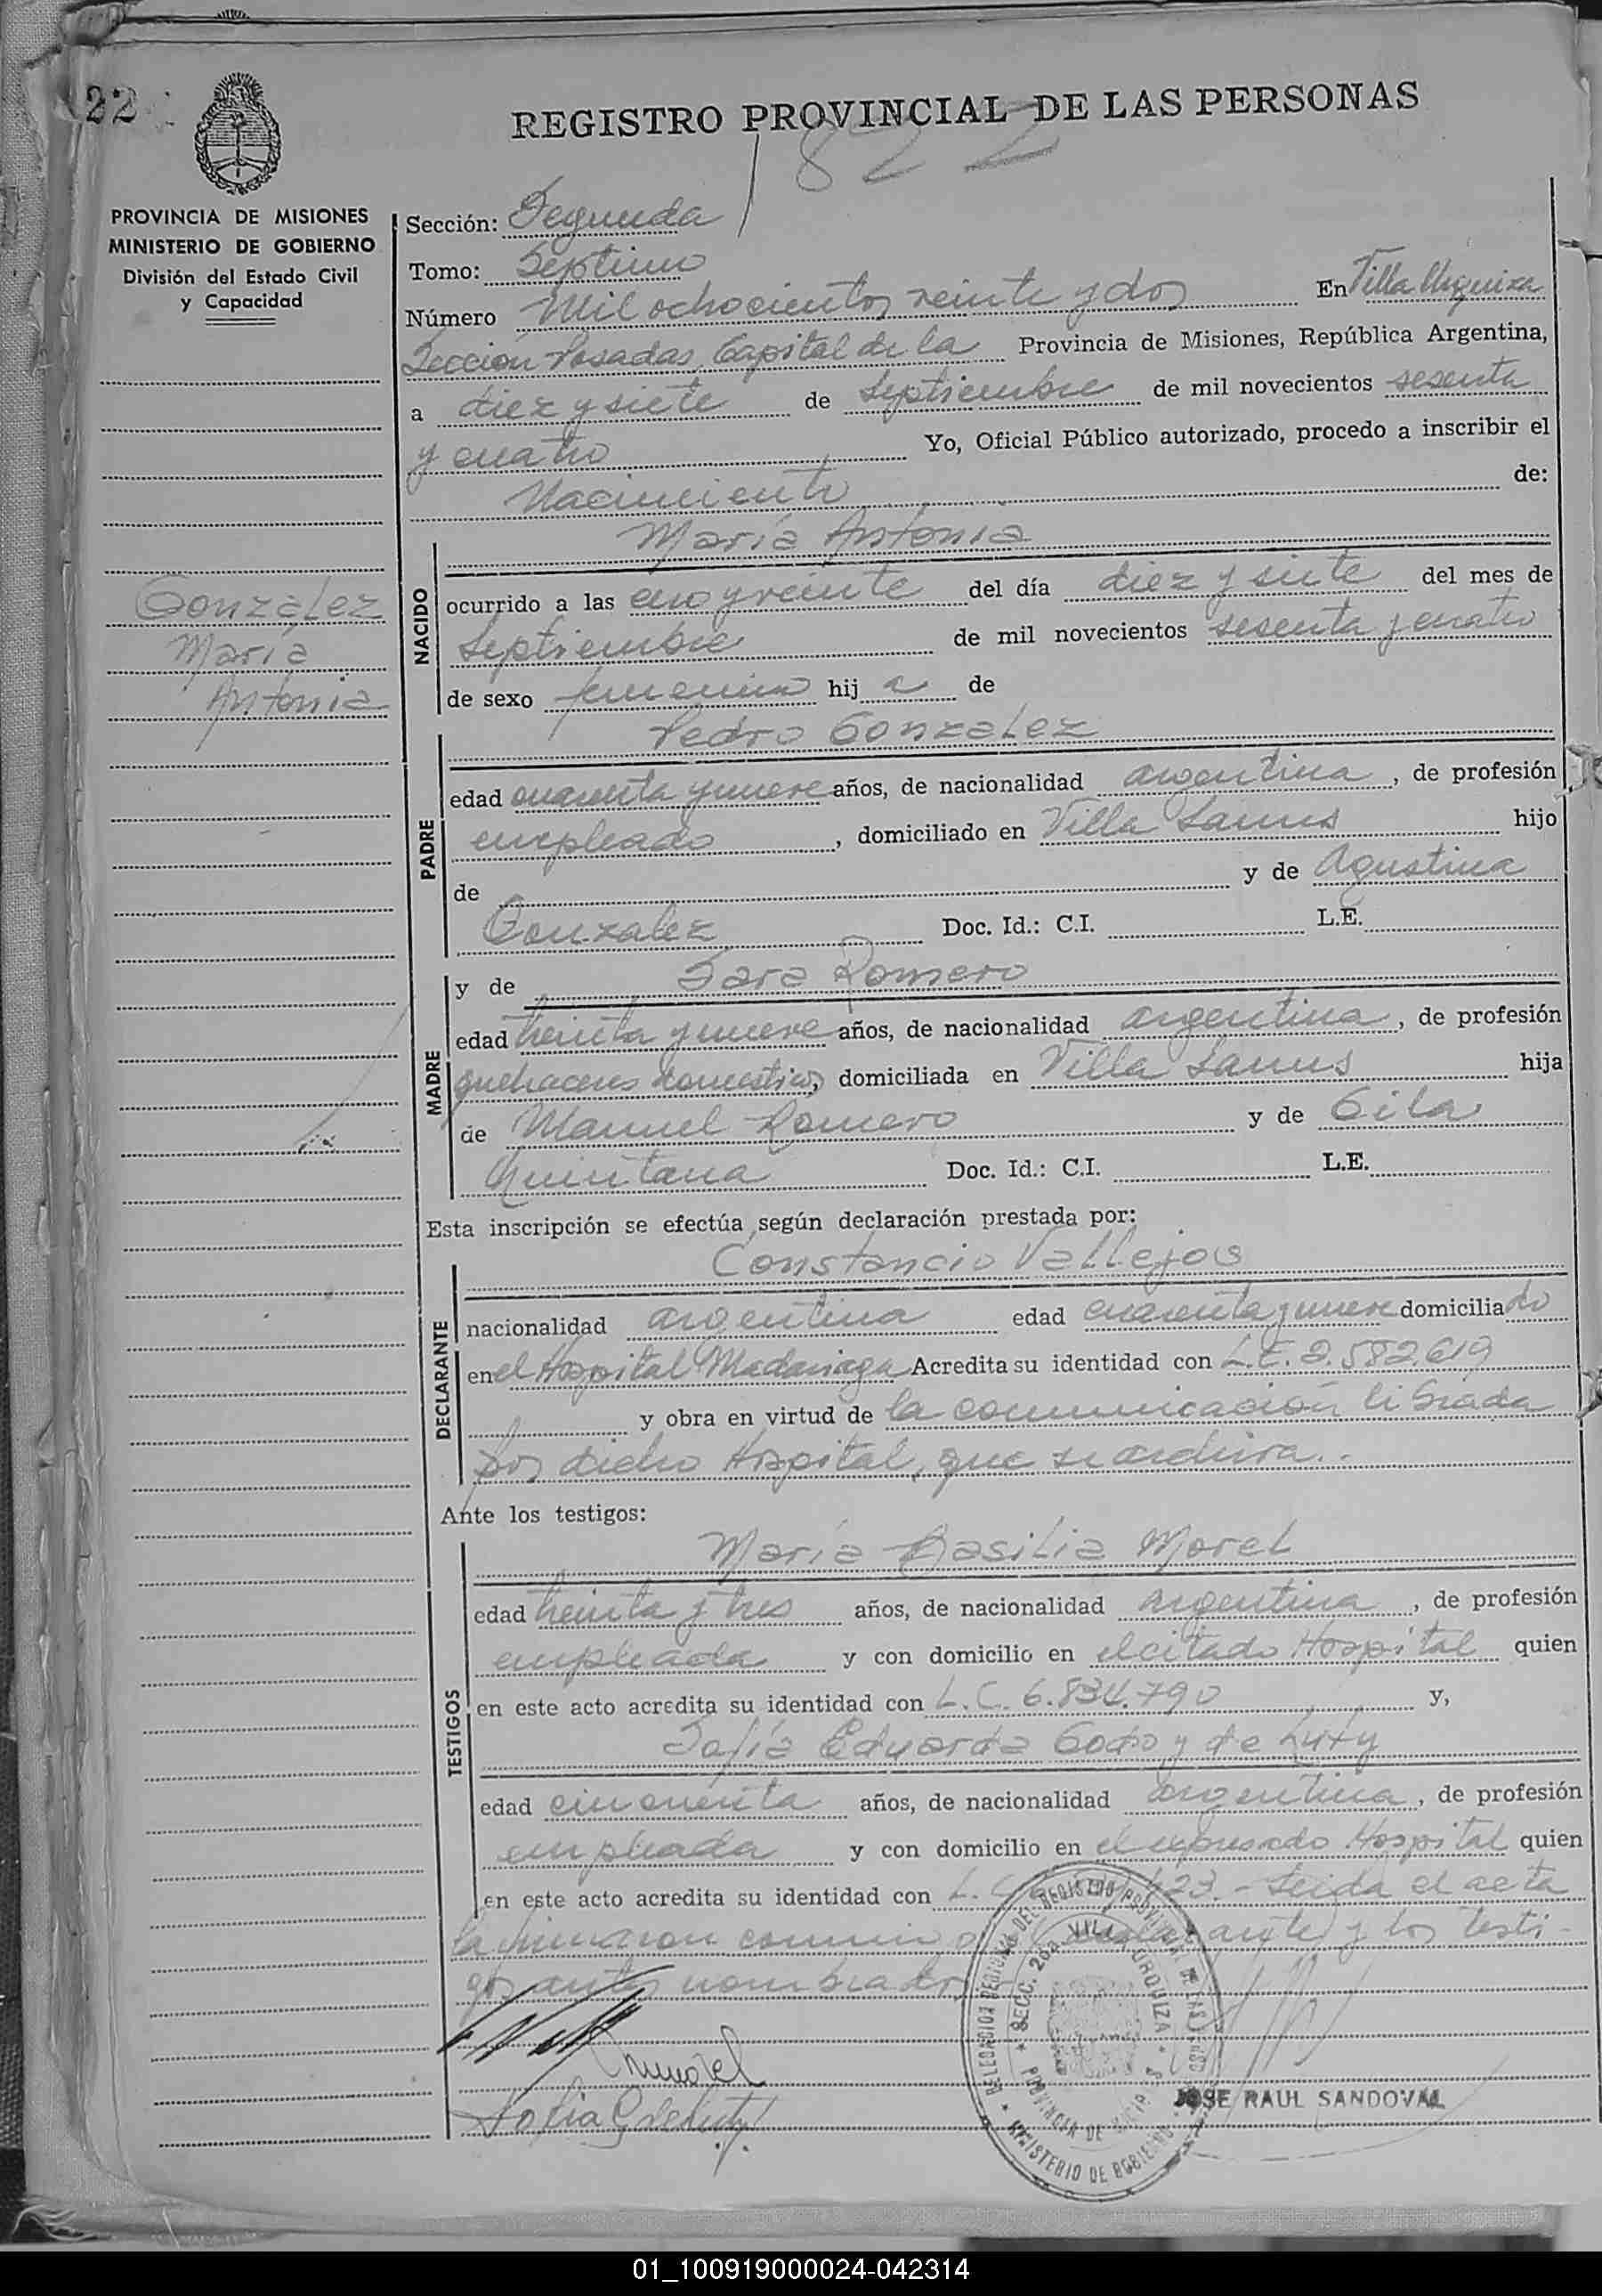 22
REGISTRO PROVINCIAL DE LAS PERSONAS
1822
PROVINCIA DE MISIONES
MINISTERIO DE GOBIERNO
División del Estado Civil
y Capacidad
Sección: Segunda
Tomo: Septimo
Número Mil ochocientos veinte y dos En Villa Urquiza
Sección Posadas, Capital de la Provincia de Misiones, República Argentina,
a diez y siete de septiembre de mil novecientos sesenta
y cuatro Yo, Oficial Público autorizado, procedo a inscribir el
Nacimiento de:
María Antonia
González
María
Antonia
NACIDO
ocurrido a las cero y veinte del día diez y siete del mes de
septiembre de mil novecientos sesenta y cuatro
de sexo femenino hij a de
Pedro Gonzalez
PADRE
edad cuarenta y nueve años, de nacionalidad argentina, de profesión
empleado, domiciliado en Villa Lanus hijo
de y de Agustina
Gonzalez Doc. Id.: C.I. L.E.
MADRE
y de Sara Romero
edad treinta y nueve años, de nacionalidad argentina, de profesión
quehaceres domesticos, domiciliada en Villa Lanus hija
de Manuel Romero y de Gila
Quintana Doc. Id.: C.I. L.E.
Esta inscripción se efectúa según declaración prestada por:
Constancio Vallejos
DECLARANTE
nacionalidad argentina edad cuarenta y nueve domiciliado
en el Hospital Madariaga Acredita su identidad con L.E. 2.582.619
y obra en virtud de la comunicación librada
por dicho Hospital, que se archiva..
Ante los testigos:
María Basilia Morel
TESTIGOS
edad treinta y tres años, de nacionalidad argentina, de profesión
empleada y con domicilio en el citado Hospital quien
en este acto acredita su identidad con L.C. 6.834.790 y,
Sofía Eduarda Godoy de Luty
edad cincuenta años, de nacionalidad argentina, de profesión
empleada y con domicilio en el expresado Hospital quien
en este acto acredita su identidad con L.C. 423.- Leida el acta
la firmaron conmigo el declarante y los testi-
gos antes nombrados
Mmorel
Sofia G de Luty
DELEGACION REGIONAL DEL REGISTRO PROVINCIAL DE LAS PERSONAS
SECC. 2da. VILLA URQUIZA
PROVINCIA DE MISIONES
MINISTERIO DE GOBIERNO
JOSE RAUL SANDOVAL
01_100919000024-042314